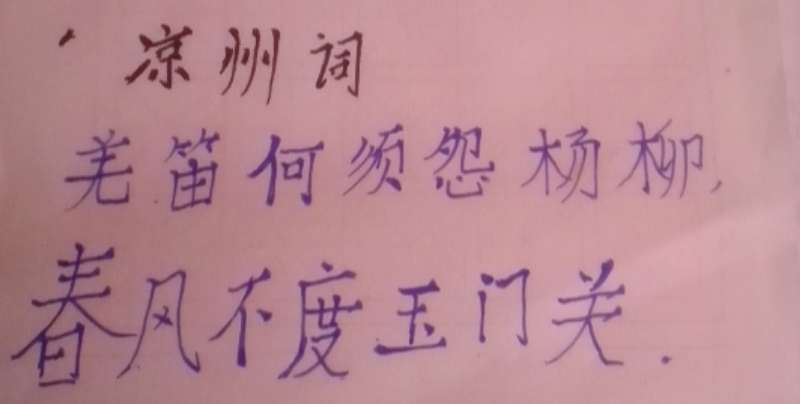 凉州词
羌笛何须怨杨柳,
春风不度玉门关.